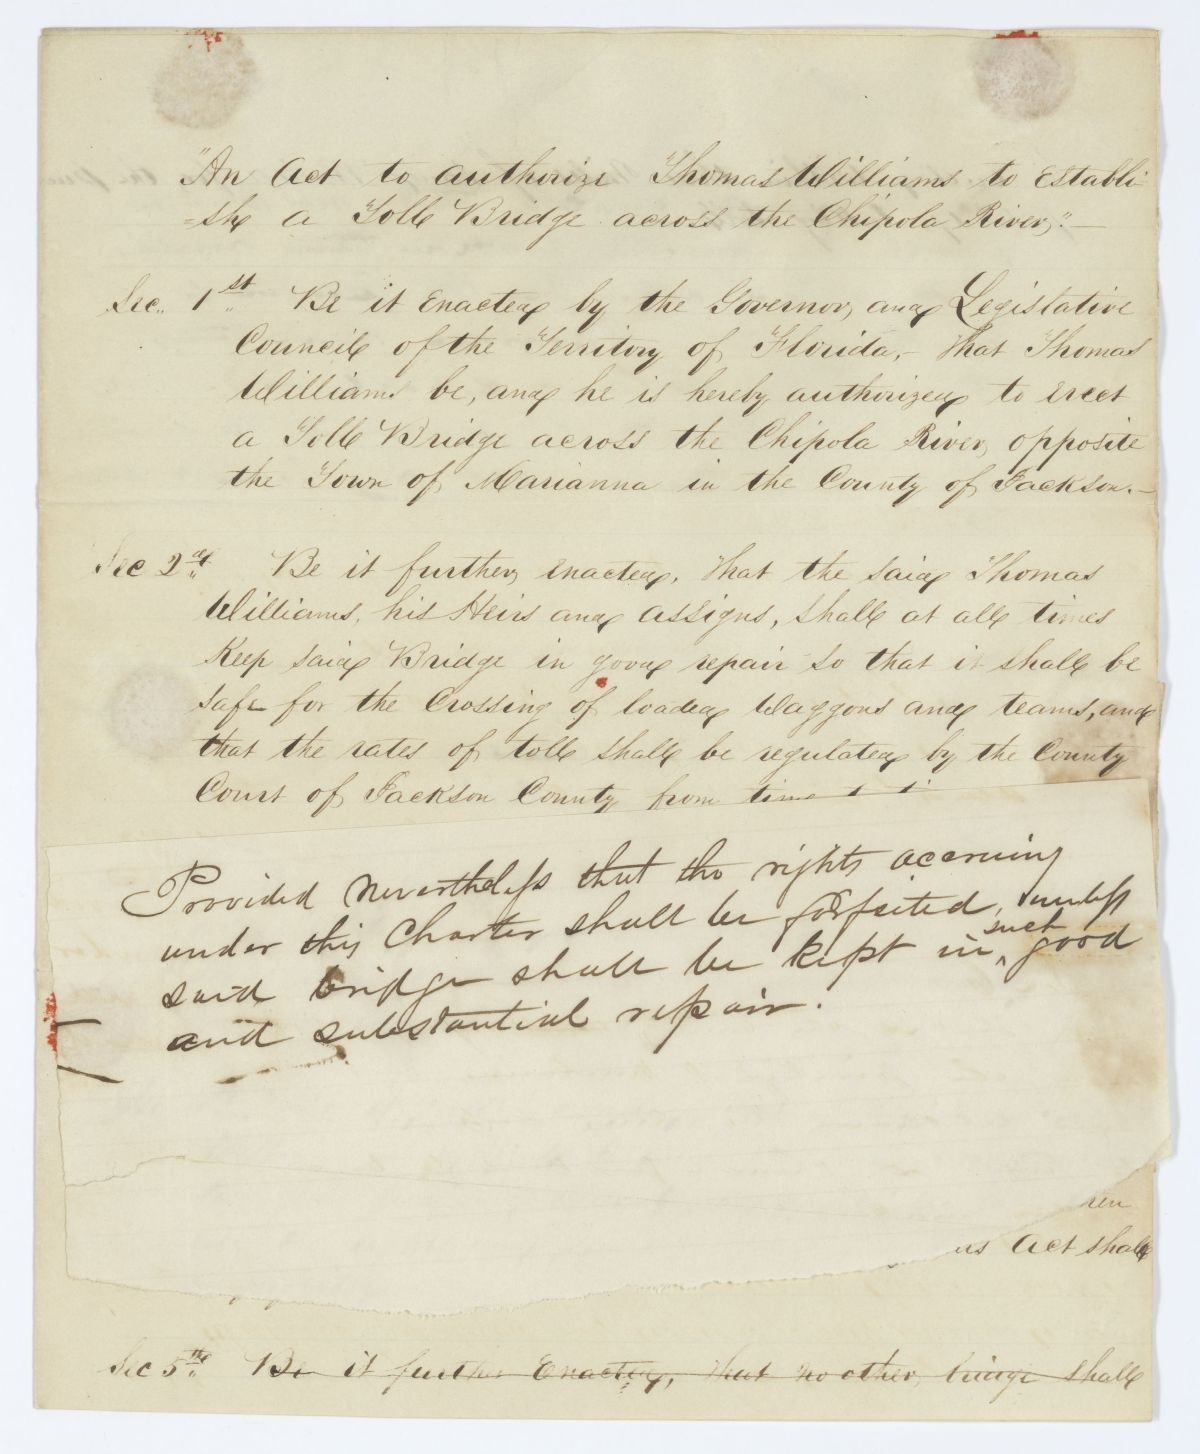 "An Act to authorize Thomas Williams to Establi-
=sh a Toll Bridge across the Chipola River,"—
Sec. 1st. Be it Enacted by the Governor, and Legislative
Council of the Territory of Florida,— that Thomas
Williams be, and he is hereby authorized to erect
a Toll Bridge across the Chipola River, opposite
the Town of Marianna in the County of Jackson.—
Sec 2d. Be it further, enacted, that the said Thomas
Williams, his Heirs and assigns, shall at all times
Keep said Bridge in good repair so that it shall be
safe for the Crossing of loaded Waggons and teams, and
that the rates of toll shall be regulated by the County
Court of Jackson County from time
Provided nevertheless that the rights accruing
under this Charter shall be forfeited, unless
said bridge shall be kept in such good
and substantial repair.
Act shall
Sec 5th. Be it further Enacted, that no other, bridge shall